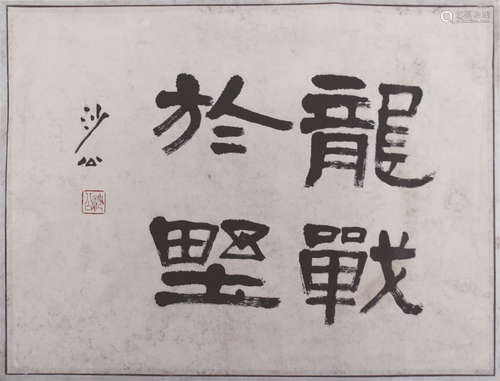 龍戰
於野
沙公